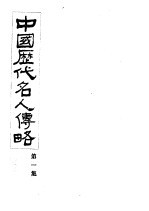 中國歷代名人傳略
第一集